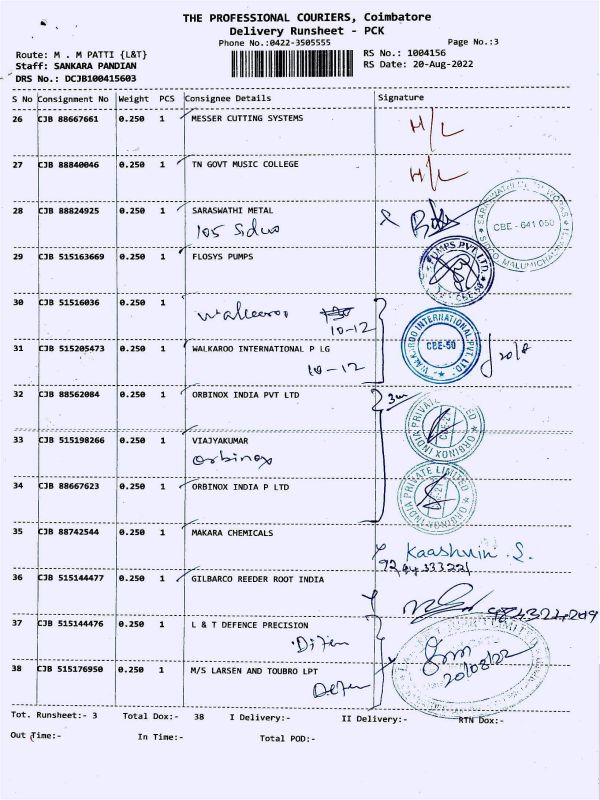 THE PROFESSIONAL COURIERS, Coimbatore
Delivery Runsheet - PCK
Phone No.:0422-3505555 Page No.:3
Route: M . M PATTI {L&T} RS No.: 1004156
Staff: SANKARA PANDIAN RS Date: 20-Aug-2022
DRS No.: DCJB100415603
S No Consignment No Weight PCS Consignee Details Signature
26 CJB 88667661 0.250 1 MESSER CUTTING SYSTEMS H/L
27 CJB 88840046 0.250 1 TN GOVT MUSIC COLLEGE H/L
28 CJB 88824925 0.250 1 SARASWATHI METAL
105 Sidco
CBE - 641 050
29 CJB 515163669 0.250 1 FLOSYS PUMPS
PUMPS PVT. LTD
CBE-50
30 CJB 51516036 0.250 1
Walkaroo
10-12
31 CJB 515205473 0.250 1 WALKAROO INTERNATIONAL P LG
10-12
WALKAROO INTERNATIONAL PVT. LTD.
CBE-50
32 CJB 88562084 0.250 1 ORBINOX INDIA PVT LTD
33 CJB 515198266 0.250 1 VIAJYAKUMAR
Orbinox
34 CJB 88667623 0.250 1 ORBINOX INDIA P LTD
ORBINOX INDIA PRIVATE LIMITED
35 CJB 88742544 0.250 1 MAKARA CHEMICALS
Kaashvin S.
36 CJB 515144477 0.250 1 GILBARCO REEDER ROOT INDIA
37 CJB 515144476 0.250 1 L & T DEFENCE PRECISION
38 CJB 515176950 0.250 1 M/S LARSEN AND TOUBRO LPT
20/08/22
Tot. Runsheet:- 3 Total Dox:- 38 I Delivery:- II Delivery:- RTN Dox:-
Out Time:- In Time:- Total POD:-